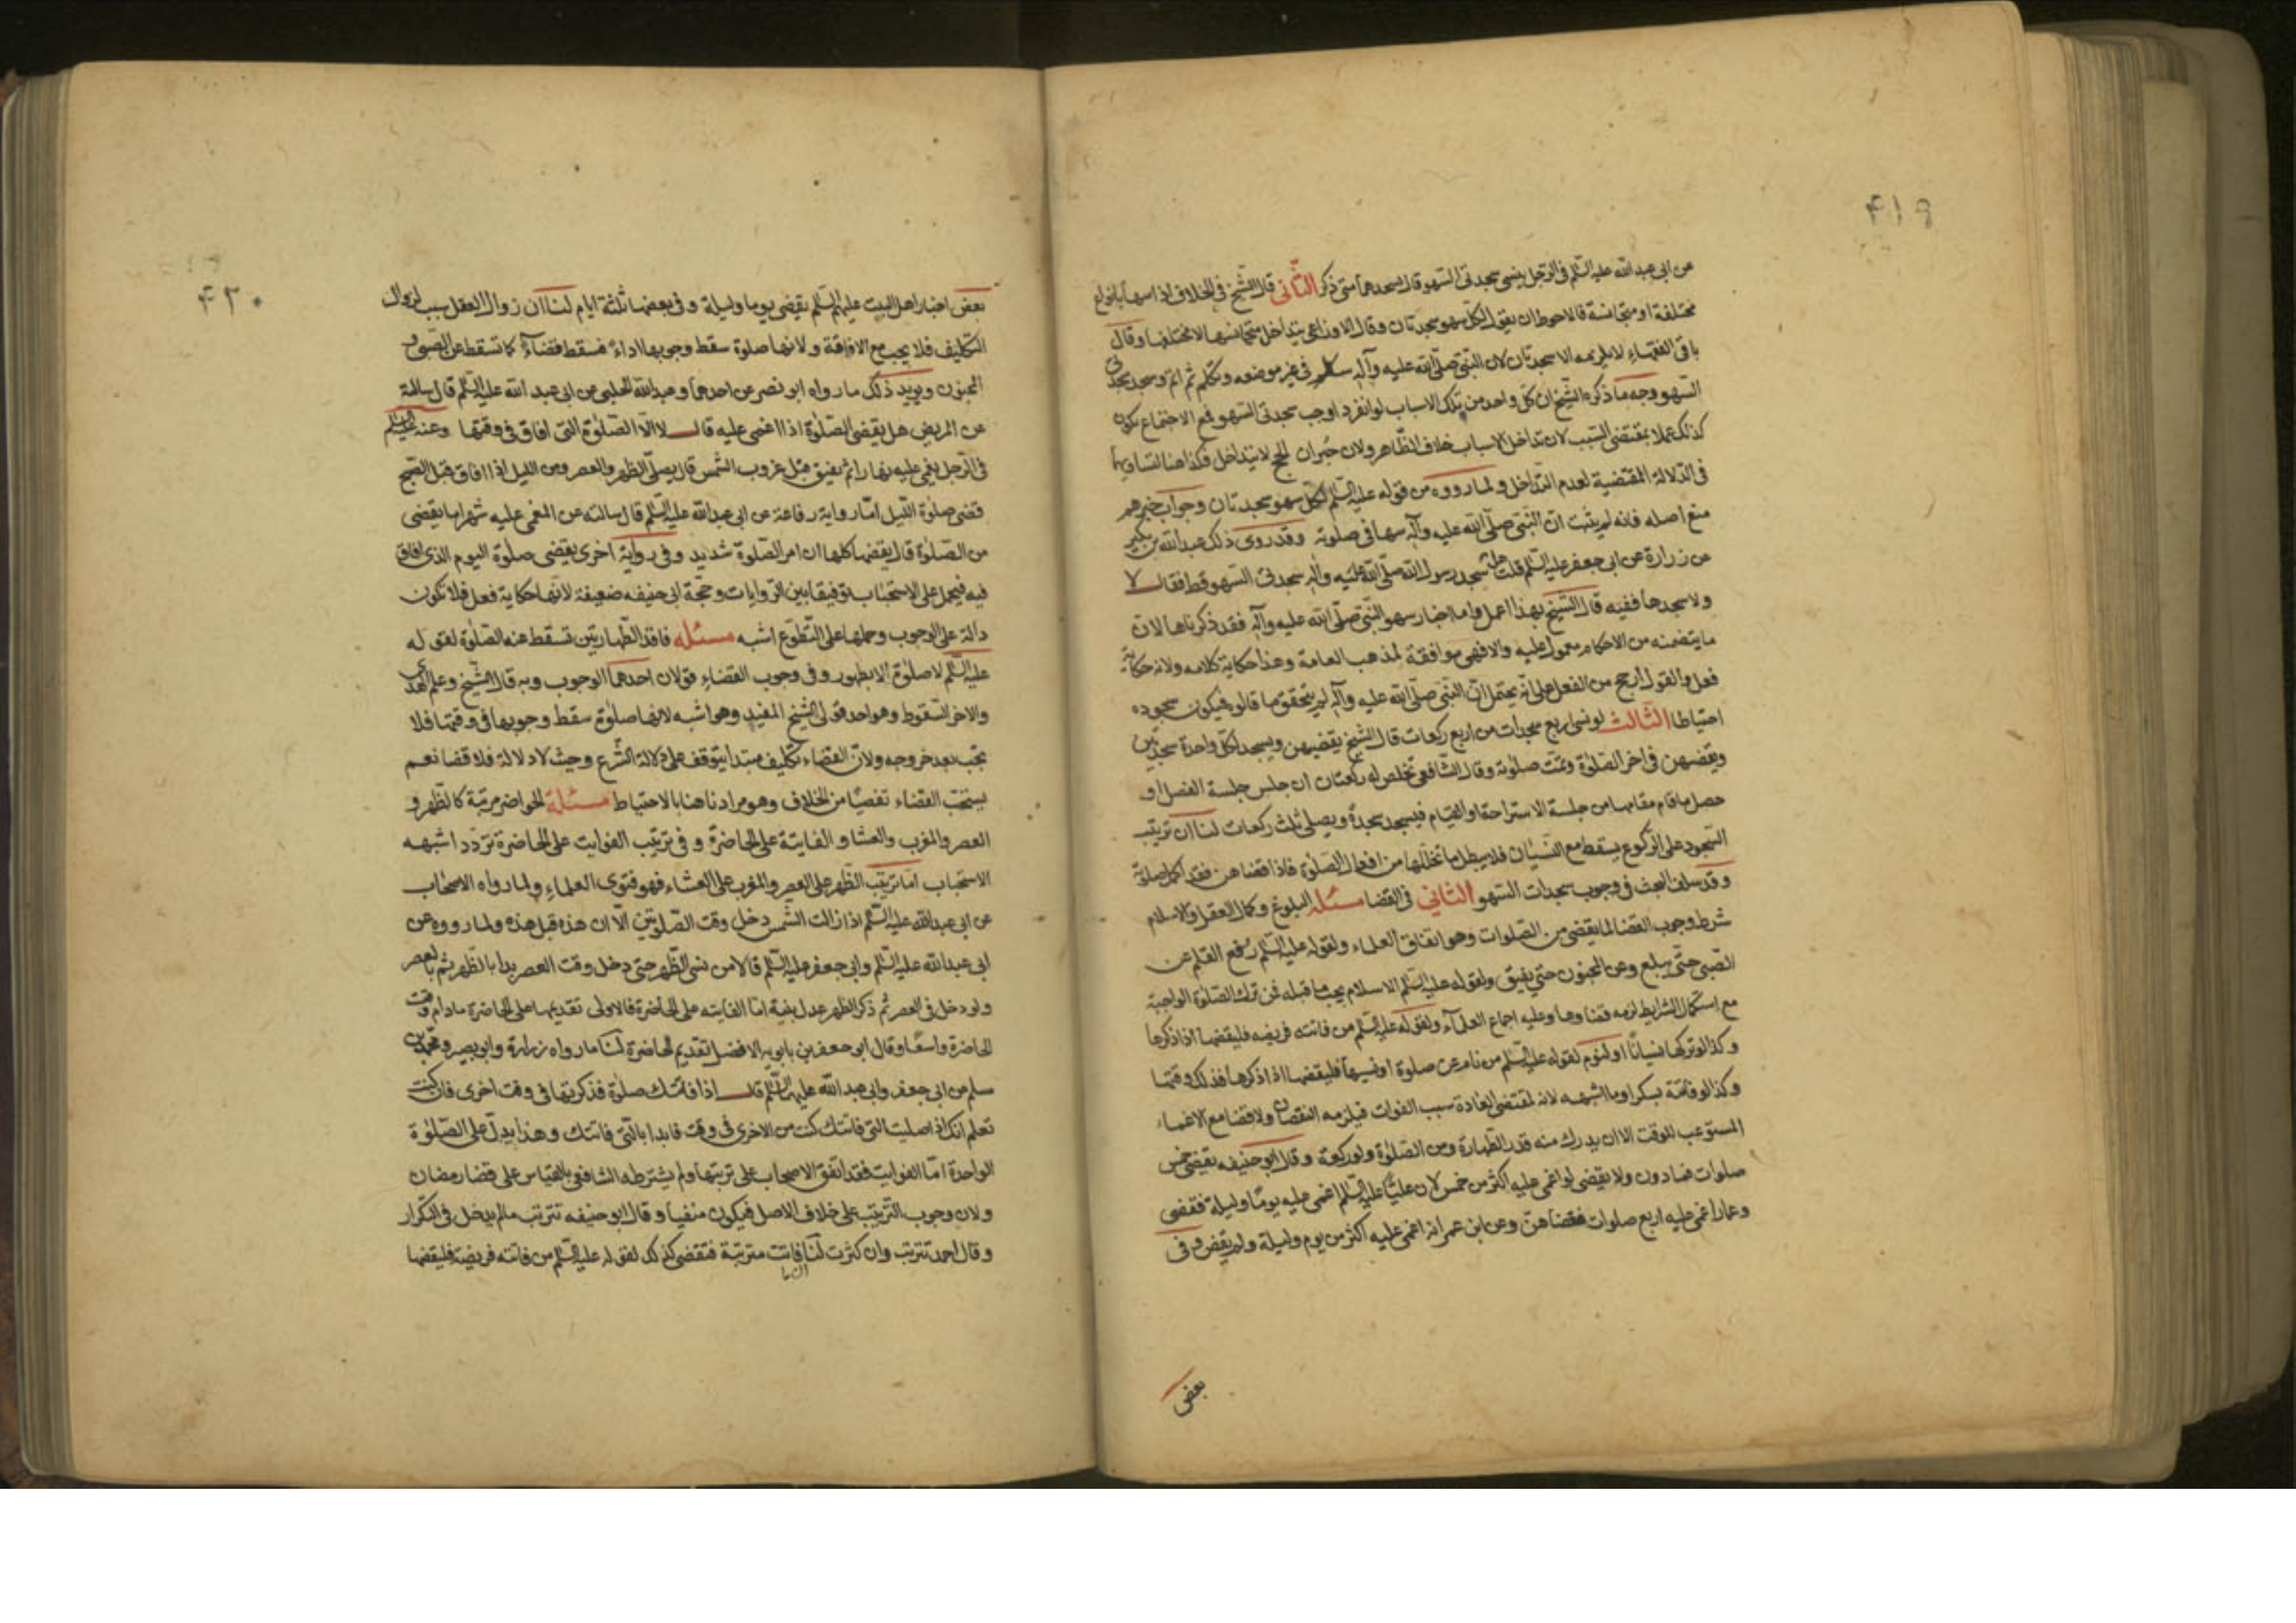 ۴۱۹
عن ابی عبد الله علیه السلم فی الرجل ینسی سجدتی السهو قال یسجدهما متی ذکر الثانی قال الشیخ فی الخلاف اذا سها بانواع
مختلفة او متجانسة فالاحوط ان یقول لکل سهو سجدتان وقال الاوزاعی یتداخل متجانسها لا مختلفها وقال
باقی الفقهاء لا یلزمه الا سجدتان لان النبی صلی الله علیه وآله سلم فی غیر موضعه وتکلم ثم اتم وسجد سجدتی
السهو وجه ما ذکره الشیخ ان کل واحد من تلک الاسباب لو انفرد اوجب سجدتی السهو فمع الاجتماع یکون
کذلک عملا بمقتضی السبب لان تداخل الاسباب خلاف الظاهر ولان جبران الحج لا یتداخل فکذا هنا لتساویهما
فی الدلالة المقتضیة لعدم التداخل ولما رووه من قوله علیه السلم لکل سهو سجدتان وجواب خبرهم
منع اصله فانه لم یثبت ان النبی صلی الله علیه وآله سها فی صلوته وقد روی ذلک عبد الله بن بکیر
عن زرارة عن ابی جعفر علیه السلم قلت هل سجد رسول الله صلی الله علیه وآله سجدتی السهو قط فقال لا
ولا سجدهما فقیه قال الشیخ بهذا اعمل واما اخبار سهو النبی صلی الله علیه وآله فقد ذکرناها لان
ما یتضمنه من الاحکام معمول علیه والا فهی موافقة لمذهب العامة وهذا حکایة کلامه ولانه حکایة
فعل والقول ارجح من الفعل علی انه یحتمل ان النبی صلی الله علیه وآله لم یتحقق ما قالوه فیکون سجوده
احتیاطا الثالث لو نسی اربع سجدات من اربع رکعات قال الشیخ یقضیهن ویسجد لکل واحدة سجدتین
ویقضیهن فی اخر الصلوة وتمت صلوته وقال الشافعی تخلص له رکعتان ان جلس جلسة الفصل او
حصل ما قام مقامها من جلسة الاستراحة او القیام فیسجد سجدة ویصلی ثلث رکعات لنا ان ترتیب
السجود علی الرکوع یسقط مع النسیان فلا یبطل ما تخللها من افعال الصلوة فاذا قضاهن فقد اکمل صلوته
وقد سلف البحث فی وجوب سجدات السهو الثانی فی القضا مسئله البلوغ وکمال العقل والاسلام
شرط وجوب القضا لما یقضی من الصلوات وهو اتفاق العلماء ولقوله علیه السلم رفع القلم عن
الصبی حتی یبلغ وعن المجنون حتی یفیق ولقوله علیه السلم الاسلام یجب ما قبله فمن ترک الصلوة الواجبة
مع استکمال الشرایط لزمه قضاوها وعلیه اجماع العلمآء ولقوله علیه السلم من فاتته فریضه فلیقضها اذا ذکرها
وکذا لو ترکها نسیانا او لنوم لقوله علیه السلم من نام عن صلوة او نسیها فلیقضها اذا ذکرها فذلک وقتها
وکذا لو فاتته بسکر او ما اشبهه لانه لمقتضی العادة سبب الفوات فیلزمه النقصان ولا قضا مع الاغماء
المستوعب للوقت الا ان یدرک منه قدر الطهارة ومن الصلوة ولو رکعة وقال ابو حنیفه یقضی خمس
صلوات فما دون ولا یقضی لو اغمی علیه اکثر من خمس لان علیا علیه السلم اغمی علیه یوما ولیلة فقضی
وعمار اغمی علیه اربع صلوات فقضاهن وعن ابن عمر انه اغمی علیه اکثر من یوم ولیلة ولم یقض وفی
بعض
۴۲۰
بعض اخبار اهل البیت علیهم السلم یقضی یوما ولیلة وفی بعضها ثلثة ایام لنا ان زوال العقل سبب لزوال
التکلیف فلا یجب مع الافاقة ولانها صلوة سقط وجوبها اداء فسقط قضاء کما تسقط عن الصبی و
المجنون ویوید ذلک ما رواه ابو نصر عن احدهما وعبد الله الحلبی عن ابی عبد الله علیه السلم قال سالته
عن المریض هل یقضی الصلوة اذا اغمی علیه قال لا الا الصلوة التی افاق فی وقتها وعنه علیه السلم
فی الرجل یغمی علیه نهارا ثم یفیق قبل غروب الشمس قال یصلی الظهر والعصر ومن اللیل اذا افاق قبل الصبح
قضی صلوة اللیل اما روایة رفاعة عن ابی عبد الله علیه السلم قال سالته عن المغمی علیه شهرا ما یقضی
من الصلوة قال یقضها کلها ان امر الصلوة شدید وفی روایة اخری یقضی صلوة الیوم الذی افاق
فیه فیحمل علی الاستحباب توفیقا بین الروایات وحجة ابی حنیفه ضعیفة لانها حکایة فعل فلا تکون
دالة علی الوجوب وحملها علی التطوع اشبه مسئله فاقد الطهارتین تسقط عنه الصلوة لقوله
علیه السلم لا صلوة الا بطهور وفی وجوب القضاء قولان احدهما الوجوب وبه قال الشیخ وعلم الهدی
والاخر السقوط وهو احد قولی الشیخ المفید وهو اشبه لانها صلوة سقط وجوبها فی وقتها فلا
تجب بعد خروجه ولان القضاء تکلیف مبتدا یتوقف علی دلالة الشرع وحیث لا دلالة فلا قضا نعم
یستحب القضاء تفصیا من الخلاف وهو مرادنا هنا بالاحتیاط مسئلة الحواضر مرتبة کالظهر و
العصر والمغرب والعشا والفایتة علی الحاضرة وفی ترتیب الفوایت علی الحاضرة تردد اشبهه
الاستحباب اما ترتیب الظهر علی العصر والمغرب علی العشاء فهو فتوی العلماء ولما رواه الاصحاب
عن ابی عبد الله علیه السلم اذا زالت الشمس دخل وقت الصلوتین الا ان هذه قبل هذه ولما رووه عن
ابی عبد الله علیه السلم وابی جعفر علیه السلم قالا من نسی الظهر حتی دخل وقت العصر بدا بالظهر ثم بالعصر
ولو دخل فی العصر ثم ذکر الظهر عدل بنیة اما الفایته علی الحاضرة فالاولی تقدیمها علی الحاضرة ما دام وقت
الحاضرة واسعا وقال ابو جعفر بن بابویه الافضل تقدیم الحاضرة لنا ما رواه زرارة وابو بصیر ومحمد بن
مسلم عن ابی جعفر وابی عبد الله علیهما السلم قال اذا فاتتک صلوة فذکرتها فی وقت اخری فان کنت
تعلم انک اذا صلیت التی فاتتک کنت من الاخری فی وقت فابدا بالتی فاتتک وهذا یدل علی الصلوة
الواحدة اما الفوایت فقد اتفق الاصحاب علی ترتیبها ولم یشترطه الشافعی بالقیاس علی قضا رمضان
ولان وجوب الترتیب علی خلاف الاصل فیکون منفیا وقال ابو حنیفه تترتب ما لم یدخل فی التکرار
وقال احمد تترتب وان کثرت لنا فاتت مترتبة فتقضی کذلک لقوله علیه السلم من فاتته فریضة فلیقضها